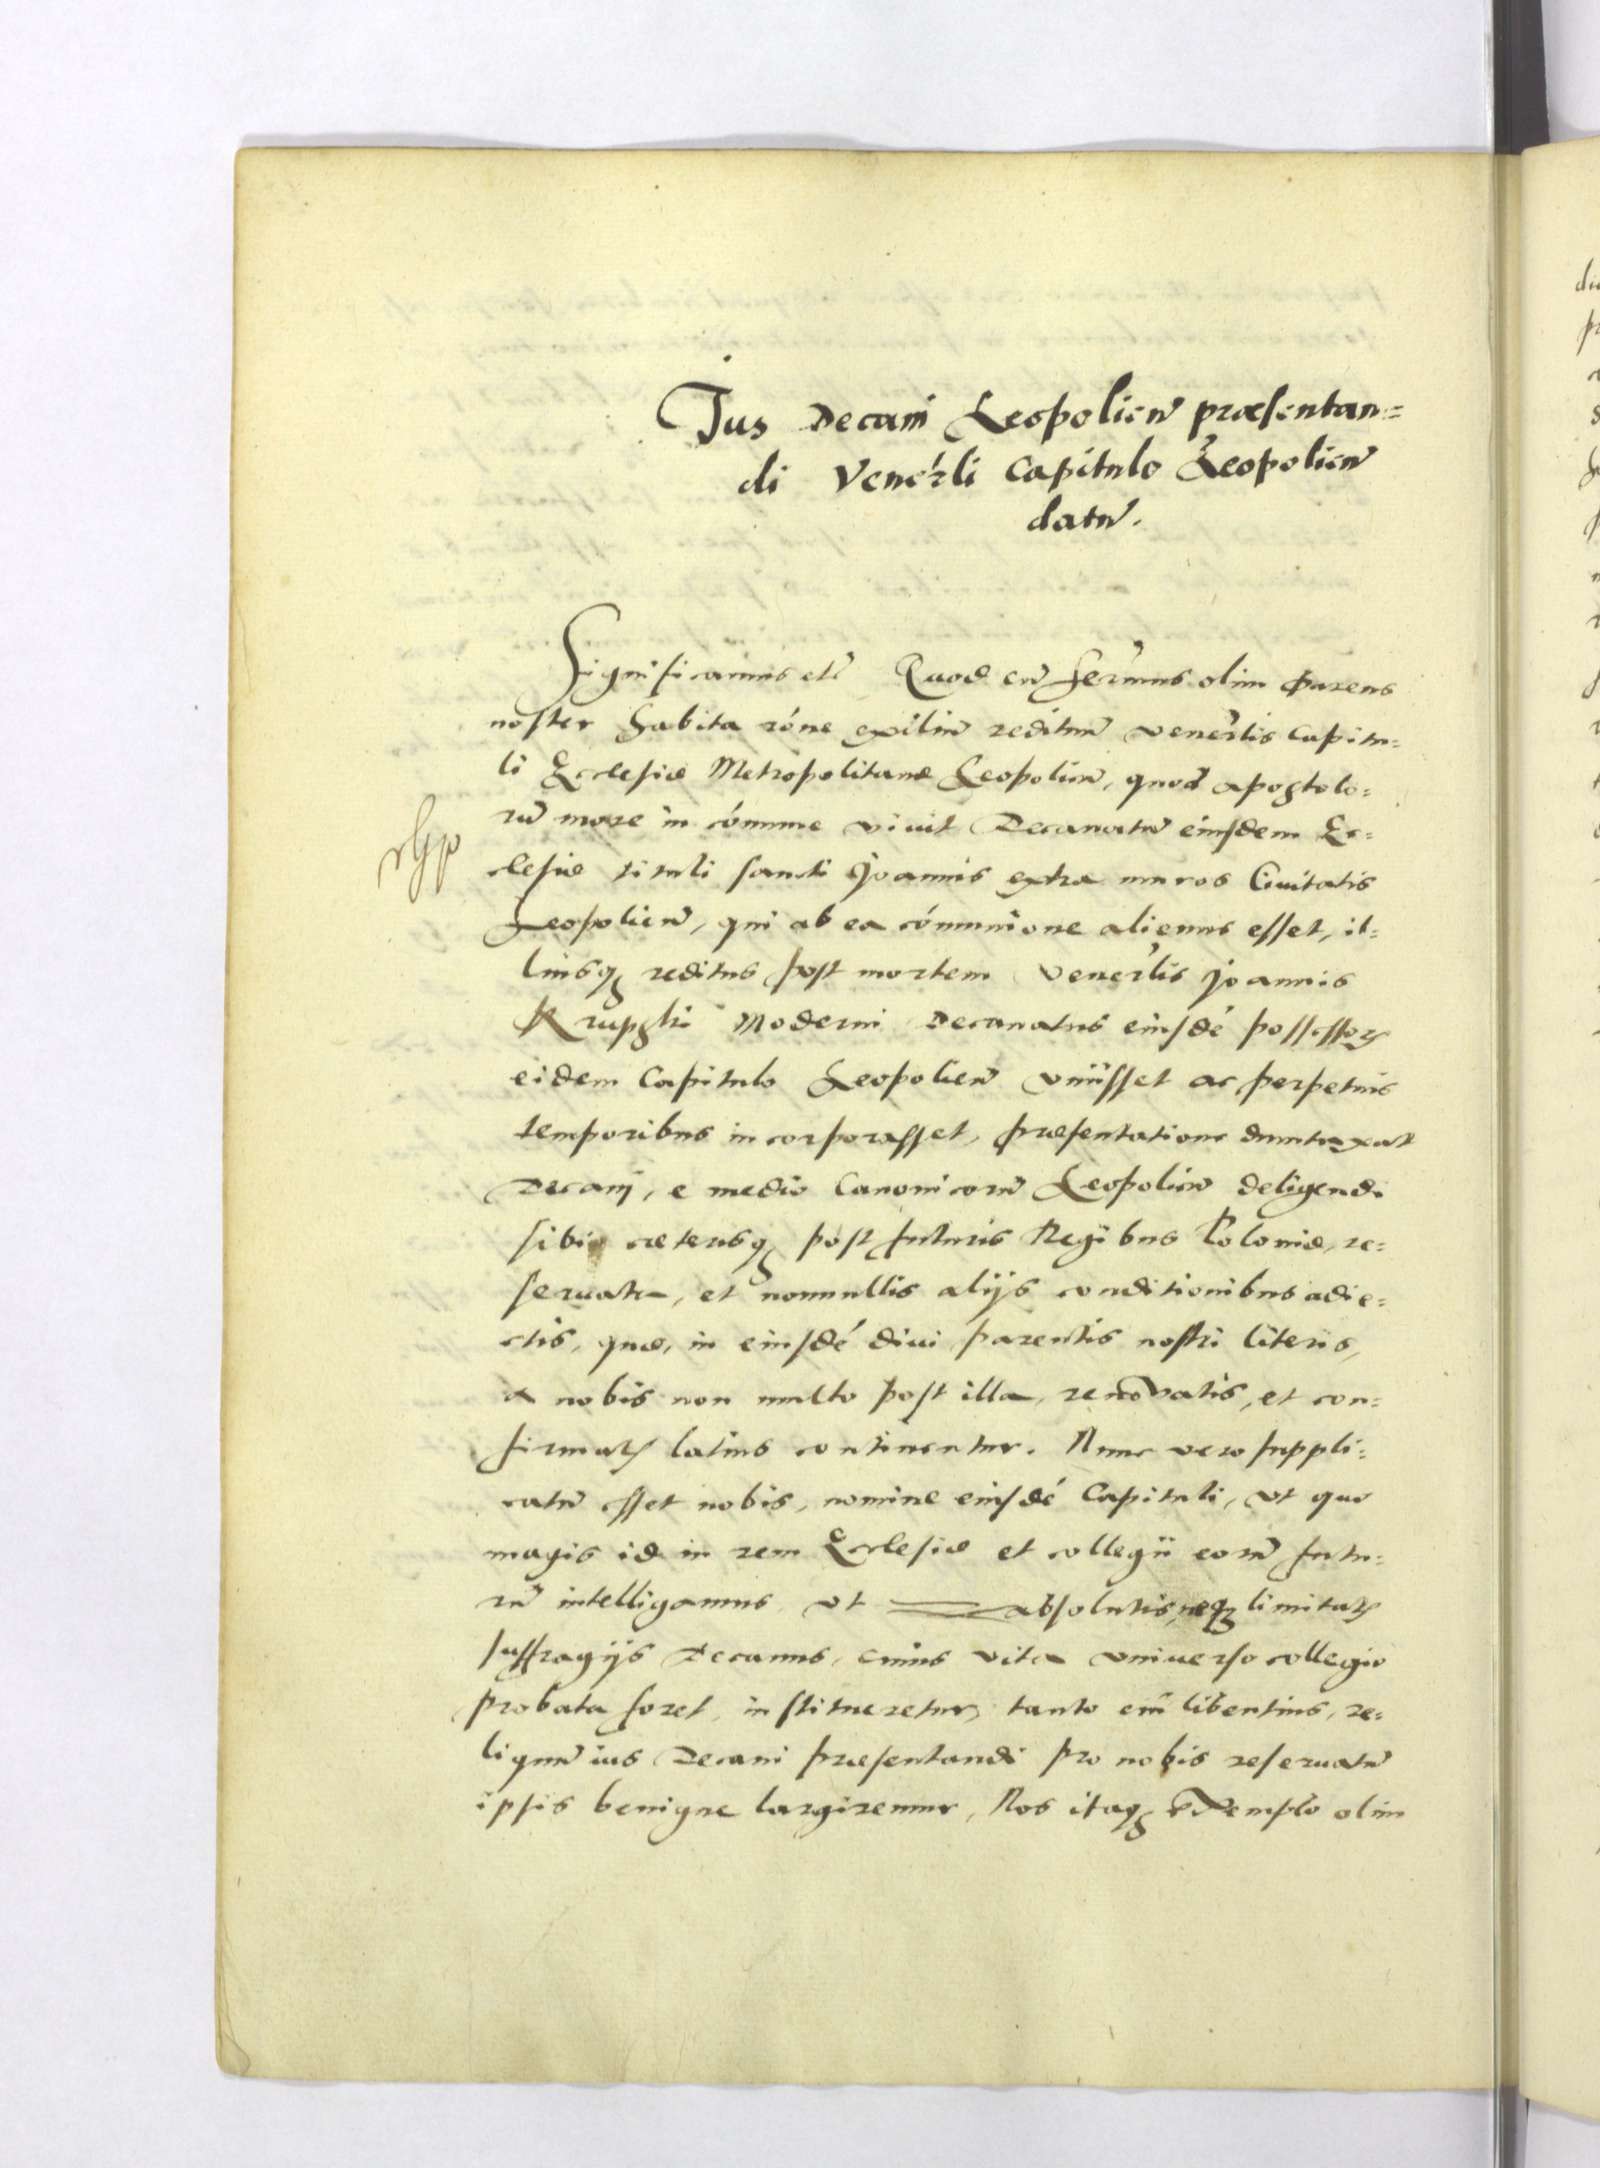 Jus Decani Leopolien̄ præsentan=
di Venerˀli Capitulo Leopolien̄
datū.
Significamus etc̄ Quod cū Serˀmus olim Parens
noster habita róne exiliū redituū venerˀlis Capitu=
li Ecclesiæ Metropolitanæ Leopolien̄, quod apostolo=
rū more in cómune viuit Decanatū eiusdem Ec=
clesiæ tituli sancti Joannis extra muros Ciuitatis
Leopolien̄, qui ab ea cómunione alienus esset, il=
liusq; reditus post mortem venerˀlis Joannis
Krupski Moderni Decanatus eiusdé possessoris
eidem Capitulo Leopolien̄ vniisset ac perpetuis
temporibus incorporasset, præsentatione duntaxat
Decani, e medio Canonicorū Leopolien̄ deligendi
sibi cæterisq; post futuris Regibus Poloniæ, re=
seruata, et nonnullis alijs conditionibus adie=
ctis, quæ, in eiusdé diui parentis nostri literis,
a nobis non multo post illa, renovatis, et con=
firmatis latius continentur. Nunc vero suppli=
catū esset nobis, nomine eiusdé Capituli, vt quo
magis id in rem Ecclesiæ et collegii eorū futu=
rū intelligamus vt absolutis, neq; limitatis
suffragijs Decanus, cuius vita vniuerso collegio
probata foret, institueretur, tanto em̄ libentius, re=
liquū ius Decani præsentandi pro nobis reseruatū
ipsis benigne largiremur, Nos itaq; exemplo olim